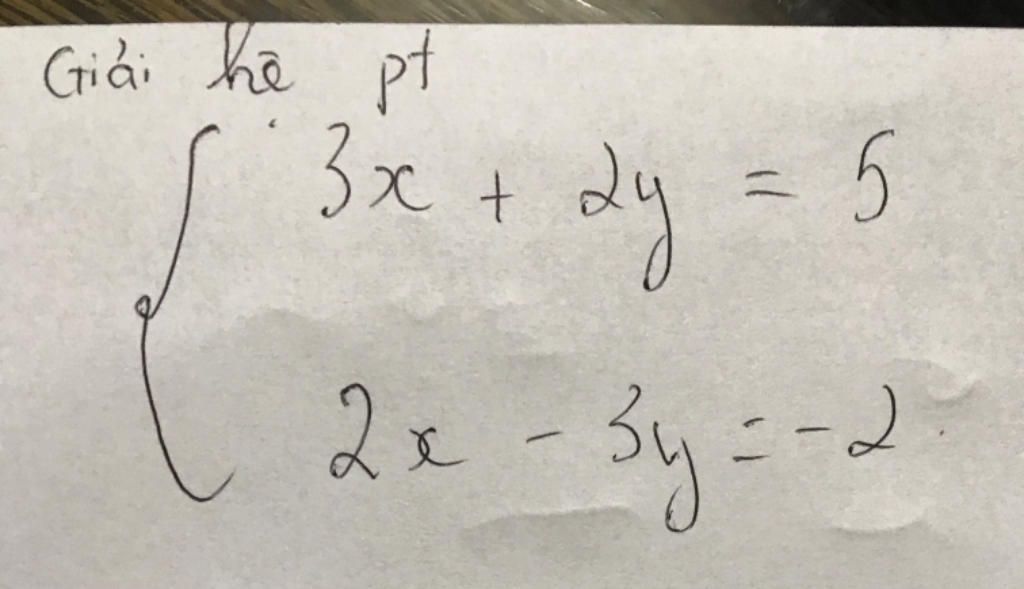 Giải hệ pt
3x + 2y = 5
2x - 3y = -2